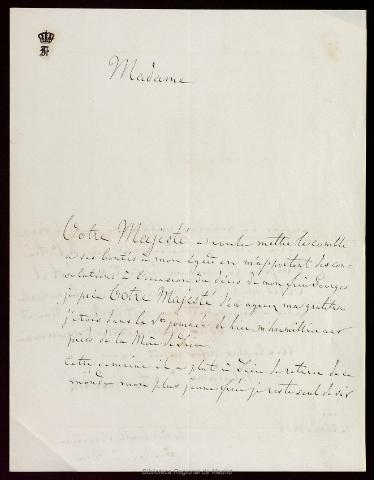 Madame
Votre Majesté a voulu mettre le comble
à ses bontés à mon égard en m'apportant des con-
solations à l'occasion du décès de mon frère Georges
je prie Votre Majesté d'en agréer ma gratitude
j'étois dans la journée de hier
pieds de la Mère de Dieu.
Cette semaine il a plut à Dieu de retirer de ce
monde mon plus jeune frère je reste seul de six
Biblioteca Regional de Madrid